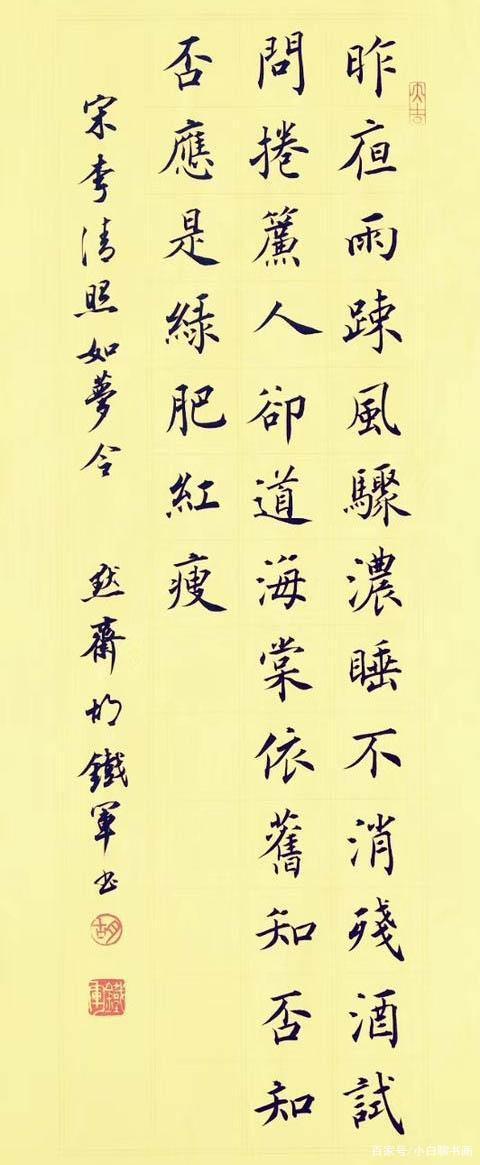 大吉
昨夜雨踈風驟濃睡不消殘酒試
問捲簾人卻道海棠依舊知否知
否應是綠肥紅瘦
宋李清照如夢令 默齋胡鐵軍书
胡
鐵軍
百家号/小白聊书画